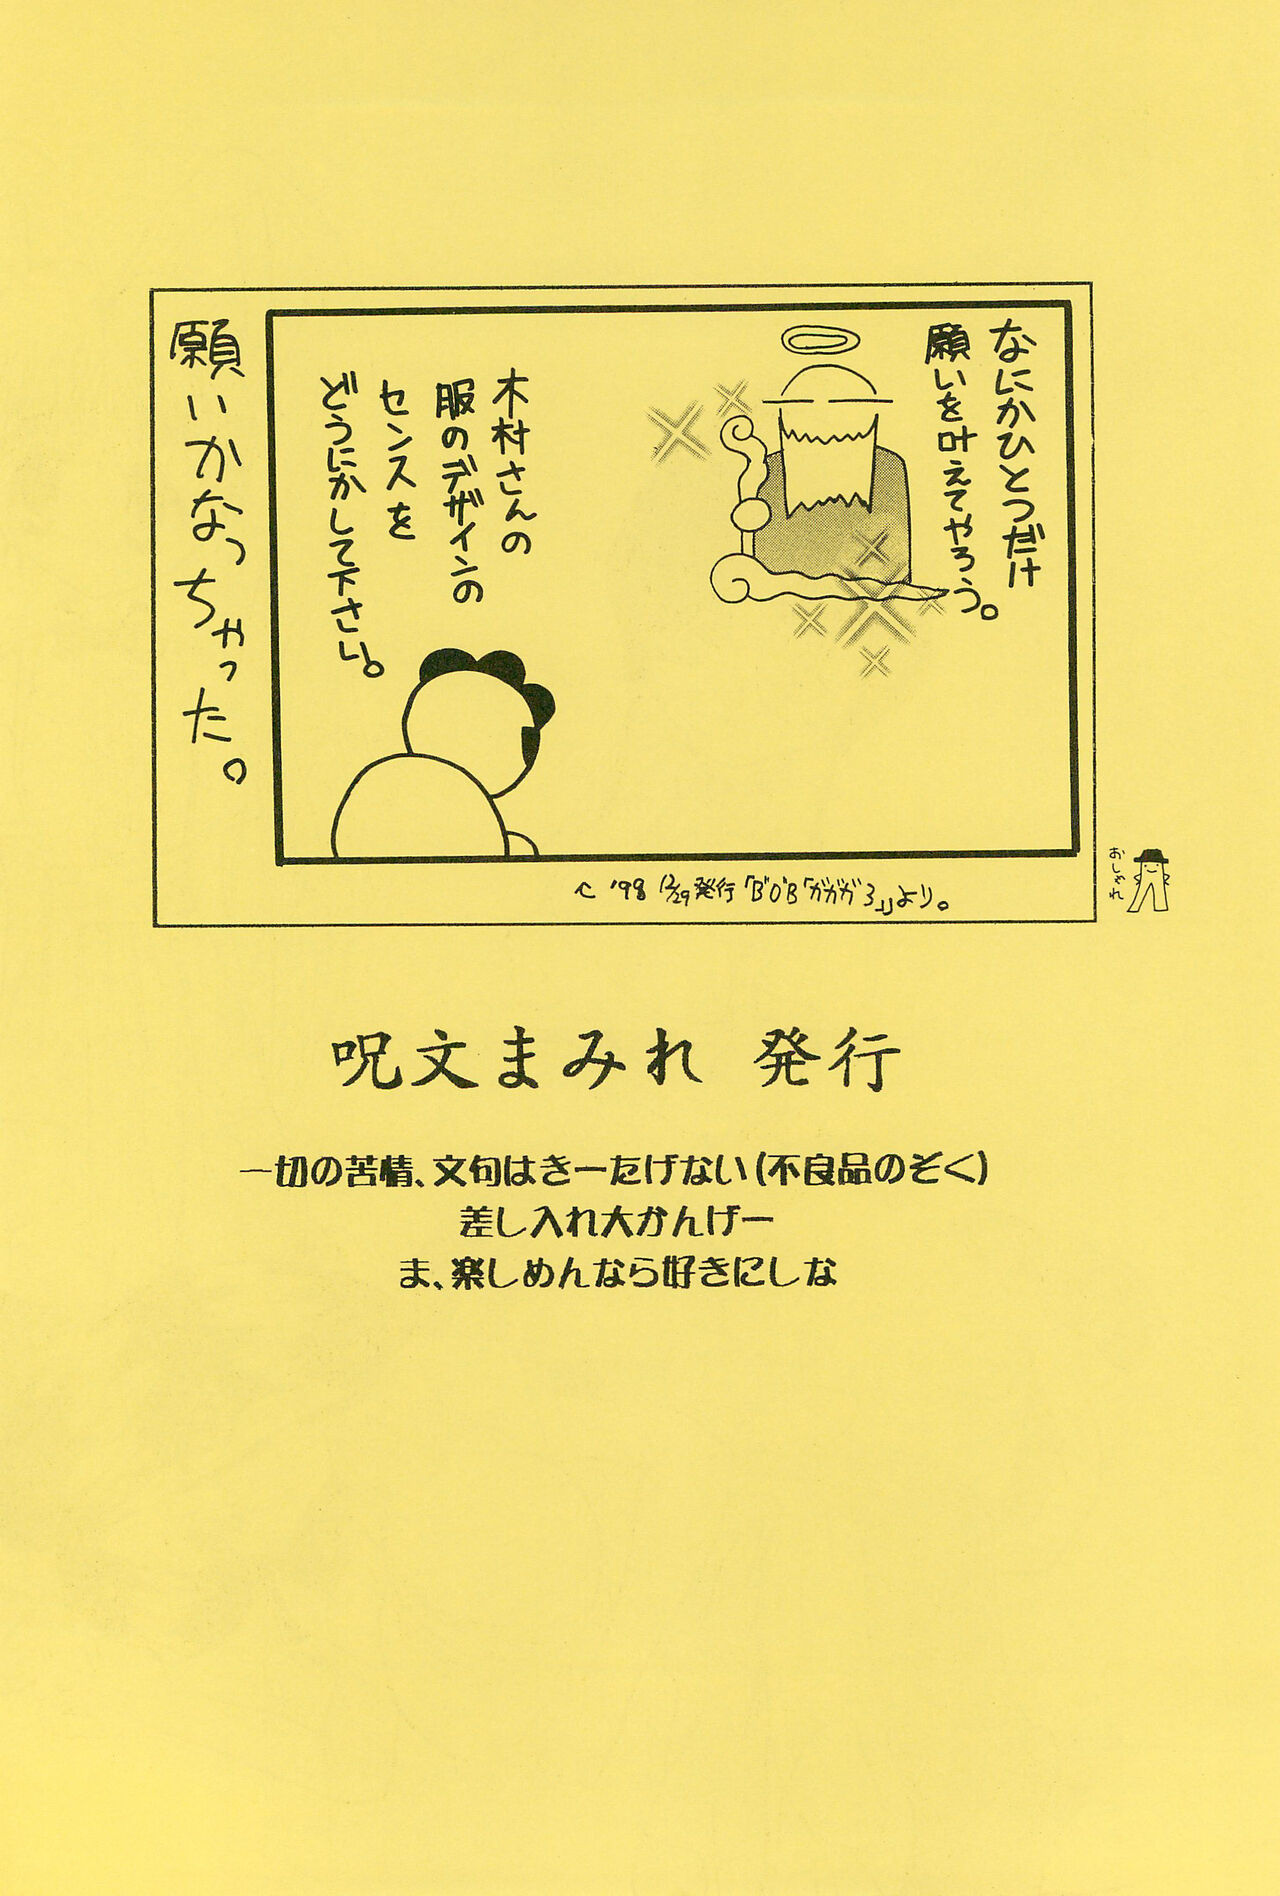 なにかひとつだけ
願いを叶えてやろう。
木村さんの
服のデザインの
センスを
どうにかして下さい。
願いかなっちゃった。
'98 12/29発行「BOB「ガガガ3」」より。
おしゃれ
呪文まみれ 発行
一切の苦情、文句はきーたげない(不良品のぞく)
差し入れ大かんげー
ま、楽しめんなら好きにしな